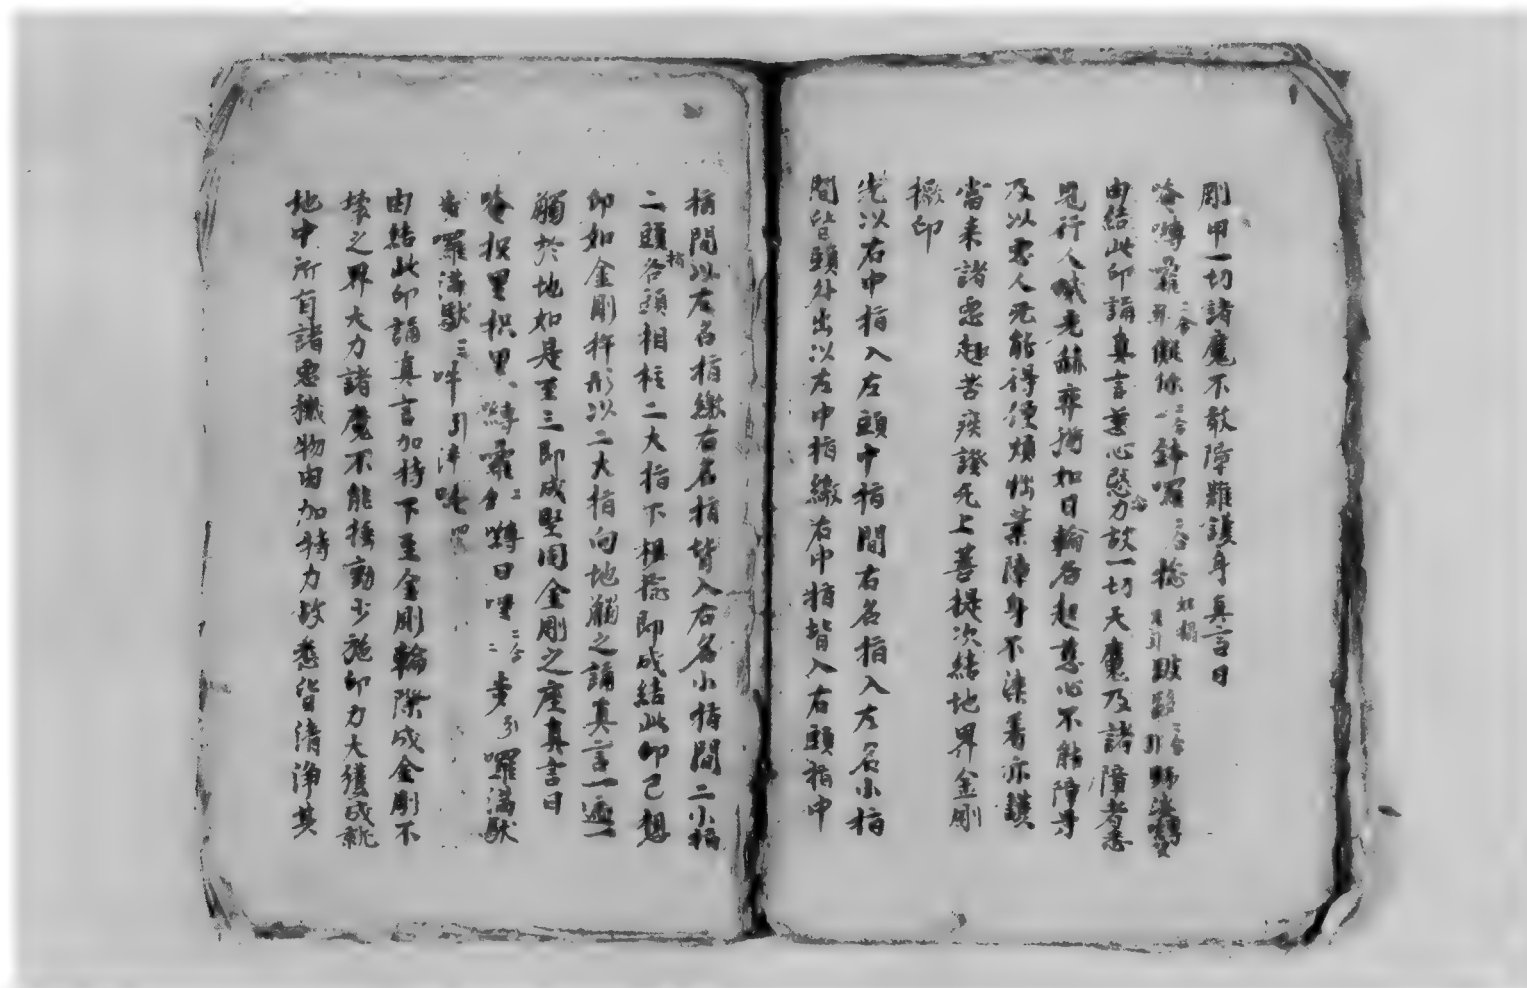 剛甲一切諸魔不敢障難護身真言曰
唵嚩日儗你鉢囉捻跛
由結此印誦真言慈心愍念力故一切天魔及諸障者悉
見行人威光赫弈猶如日輪各起慈心不能障导
及以惡人无能得便煩惱業障身不染着亦護
當来諸惡趣苦疾證无上菩提次結地界金剛
橛印
先以右中指入左頭中指間右名指入左名小指
間皆頭外出以左中指繳右中指背入右頭指中
指間以左名指繳右名指背入右名小指間二小指
二頭指各頭相柱二大指下相捻即成結此印已想
印如金剛杵形以二大指向地觸之誦真言一遍一
觸於地如是至三即成堅固金剛之座真言曰
唵枳里枳里嚩嚩日哩二合步引囉滿馱
囉滿馱三吽引泮吒四
由結此印誦真言加持下至金剛輪際成金剛不
壞之界大力諸魔不能揺動少施功力大獲成就
地中所有諸惡穢物由加持力故悉皆清淨其